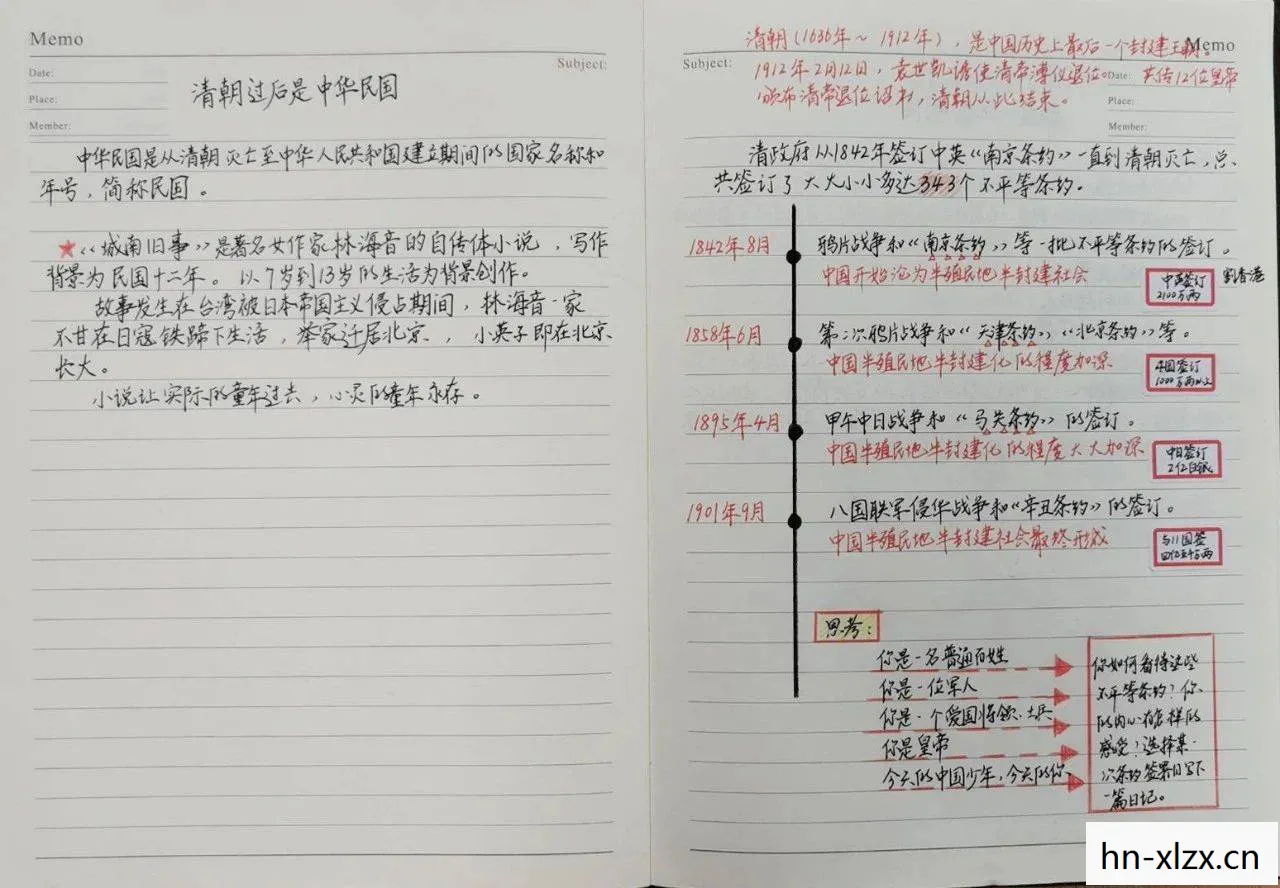 Memo
Date:
Subject:
Place:
清朝过后是中华民国
Member:
中华民国是从清朝灭亡至中华人民共和国建立期间的国家名称和
年号，简称民国。
★《城南旧事》是著名女作家林海音的自传体小说，写作
背景为民国十二年。以7岁到13岁的生活为背景创作。
故事发生在台湾被日本帝国主义侵占期间，林海音一家
不甘在日寇铁蹄下生活，举家迁居北京，小英子即在北京
长大。
小说让实际的童年过去，心灵的童年永存。
Memo
清朝(1636年～1912年)，是中国历史上最后一个封建王朝。
Subject:
1912年2月12日，袁世凯诱使清帝溥仪退位。共传12位皇帝
Date:
颁布清帝退位诏书，清朝从此结束。
Place:
Member:
清政府从1842年签订中英《南京条约》一直到清朝灭亡，总
共签订了大大小小多达343个不平等条约。
1842年8月
鸦片战争和《南京条约》等一批不平等条约的签订。
中国开始沦为半殖民地半封建社会
中英签订
2100万两
割香港
1858年6月
第二次鸦片战争和《天津条约》、《北京条约》等。
中国半殖民地半封建化的程度加深
4国签订
1000万两以上
1895年4月
甲午中日战争和《马关条约》的签订。
中国半殖民地半封建化的程度大大加深
中日签订
2亿白银
1901年9月
八国联军侵华战争和《辛丑条约》的签订。
中国半殖民地半封建社会最终形成
与11国签
四亿五千万两
思考：
你是一名普通百姓
你是一位军人
你是一个爱国将领、士兵
你是皇帝
今天的中国少年，今天的你、
你如何看待这些
不平等条约？你
的内心有怎样的
感受？选择某一
次条约签署日写下
一篇日记。
hn-xlzx.cn